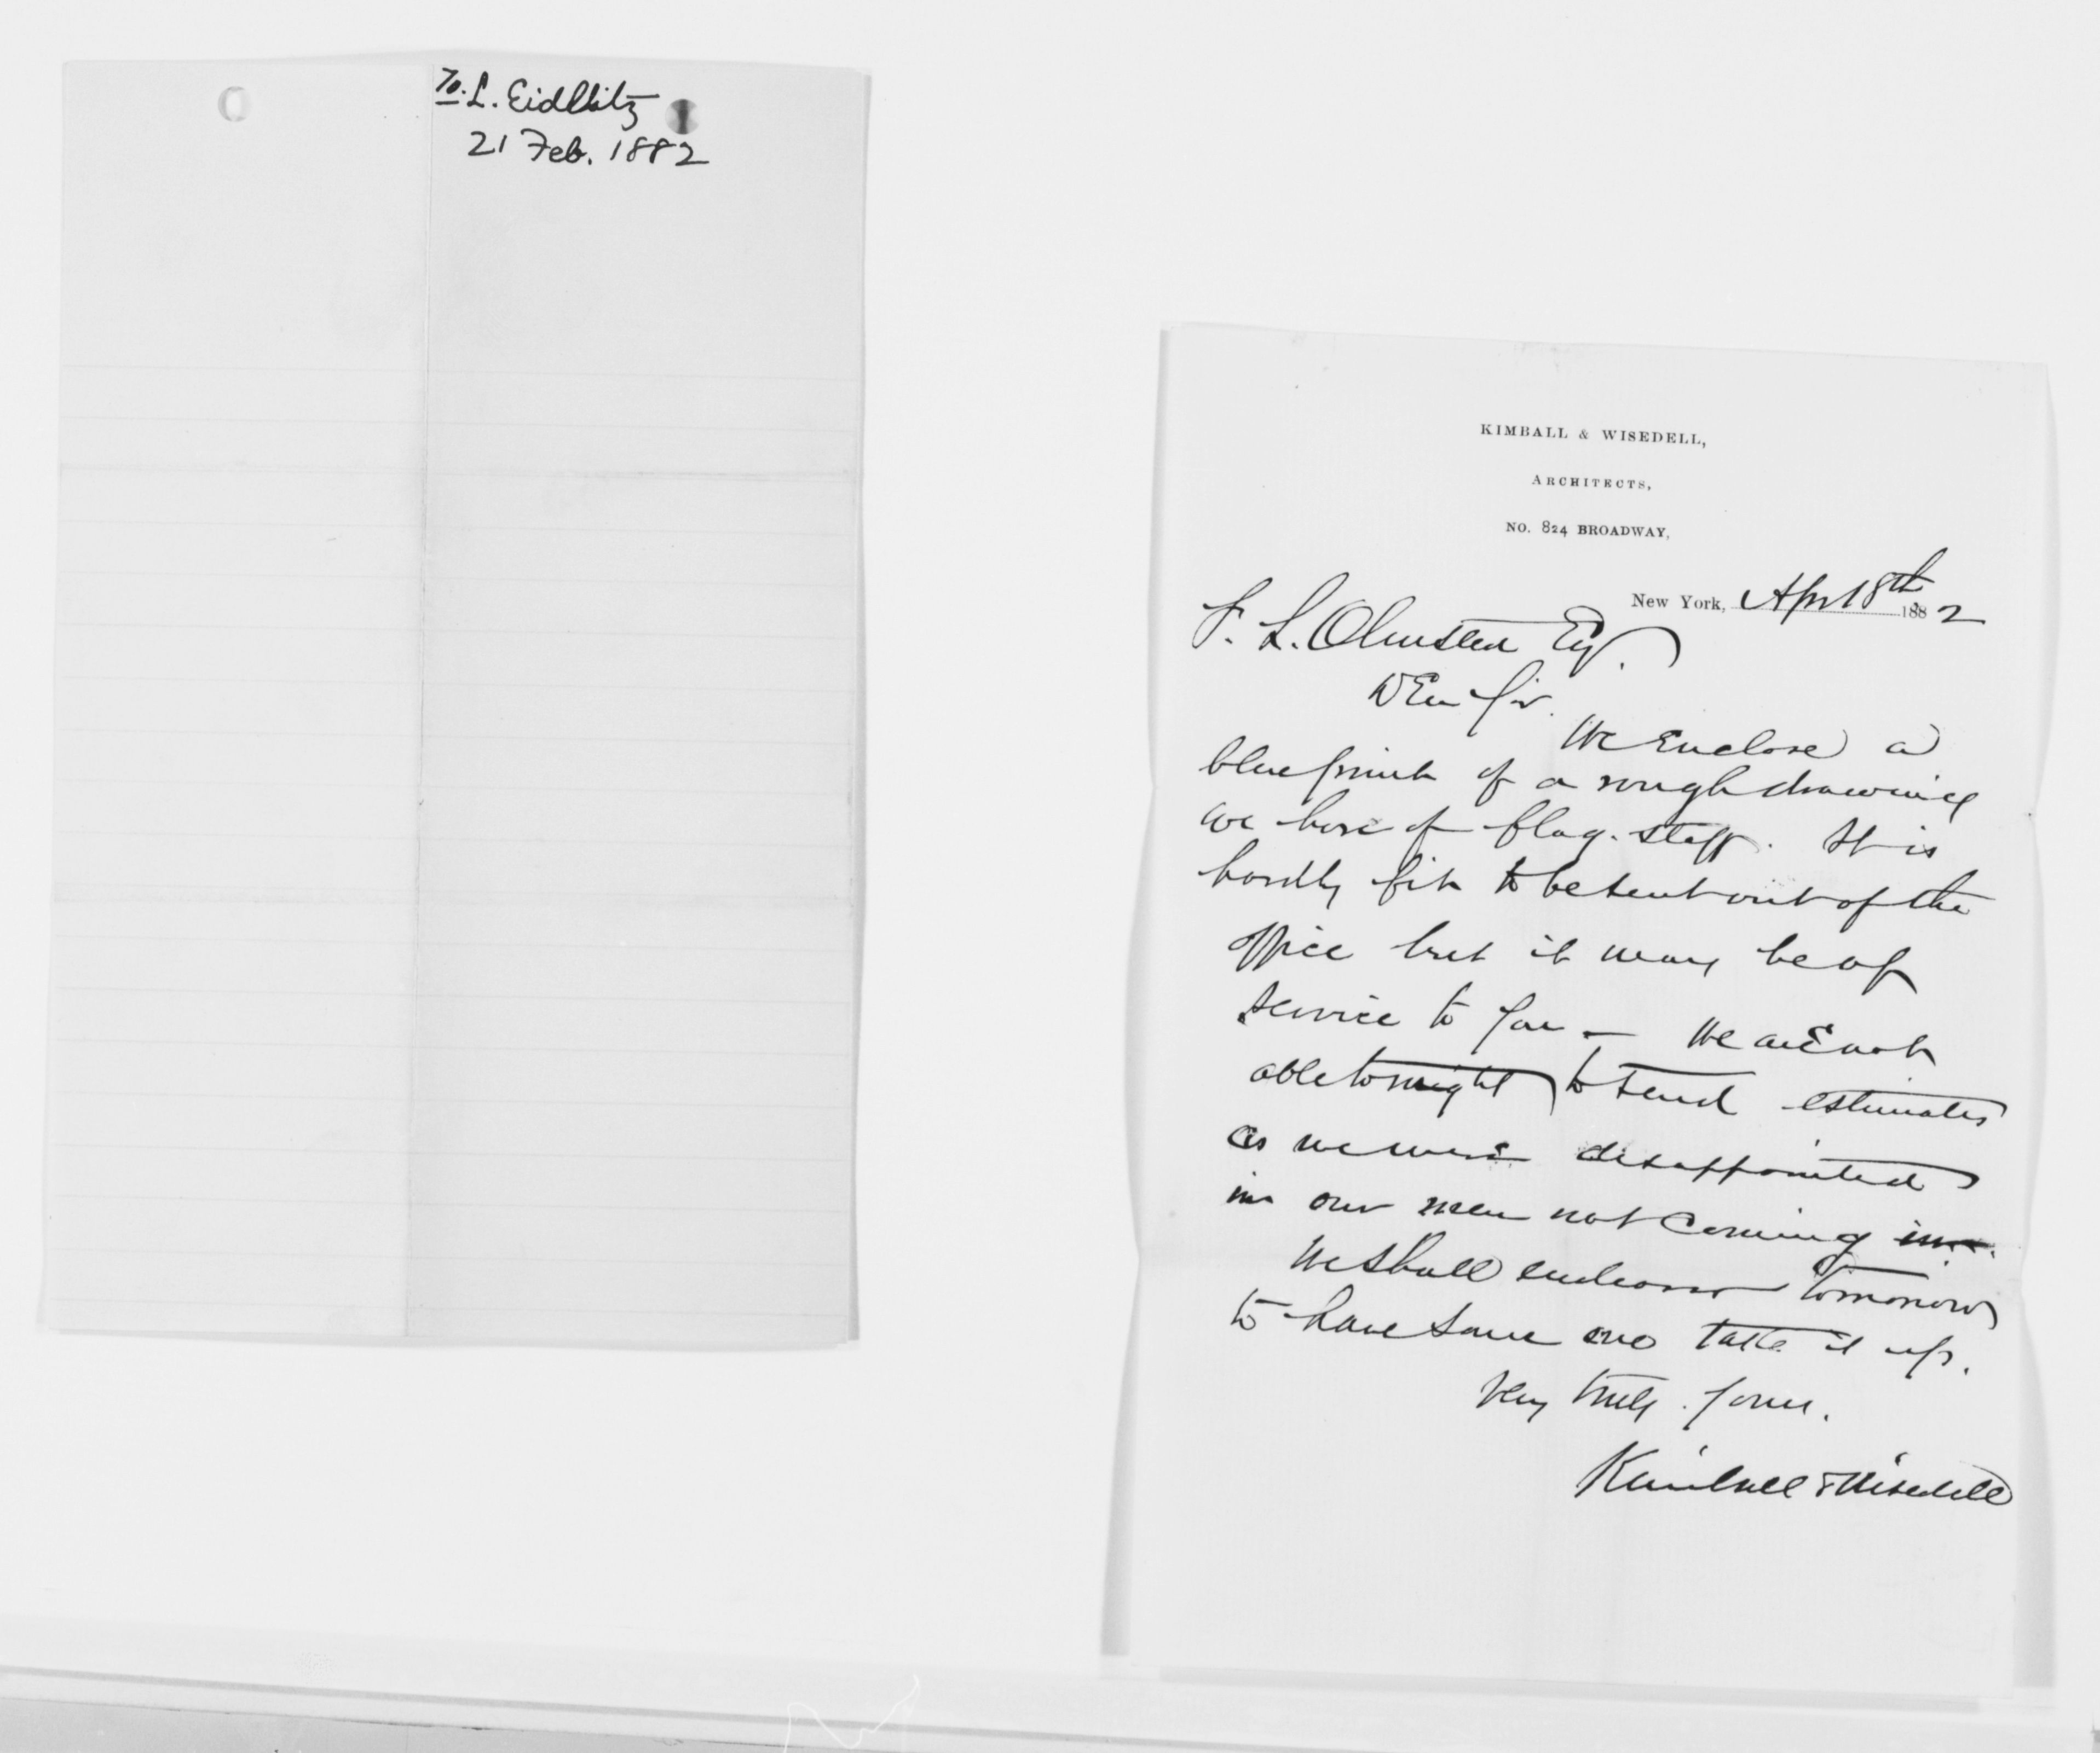 To. L. Eidlitz
21 Feb. 1882
KIMBALL & WISEDELL,
ARCHITECTS,
NO. 824 BROADWAY,
New York, Apr 18th 1882
F. L. Olmsted Esq.
Dear Sir.
We Enclose a
blue print of a rough drawing
we have of flag-staff. It is
hardly fit to be sent out of the
office but it may be of
service to you — We are not
able tonight to send estimates
as we were disappointed
in our men not coming in.
We shall endeavor tomorrow
to have some one take it up.
Very truly yours.
Kimball & Wisedell